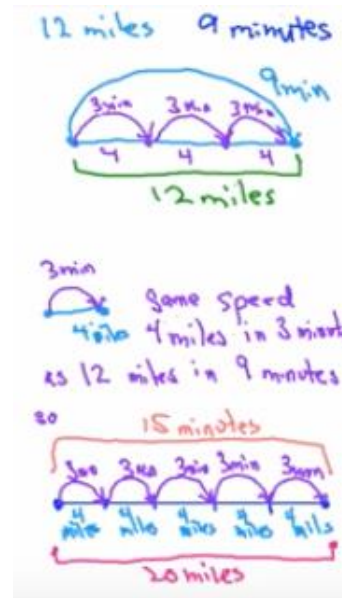 12 miles 9 minutes
9min
3min 3min 3min
4 4 4
12 miles
3min
same speed
4 miles 4 miles in 3 minutes
as 12 miles in 9 minutes
so
15 minutes
3min 3min 3min 3min 3min
4 4 4 4 4
miles miles miles miles miles
20 miles